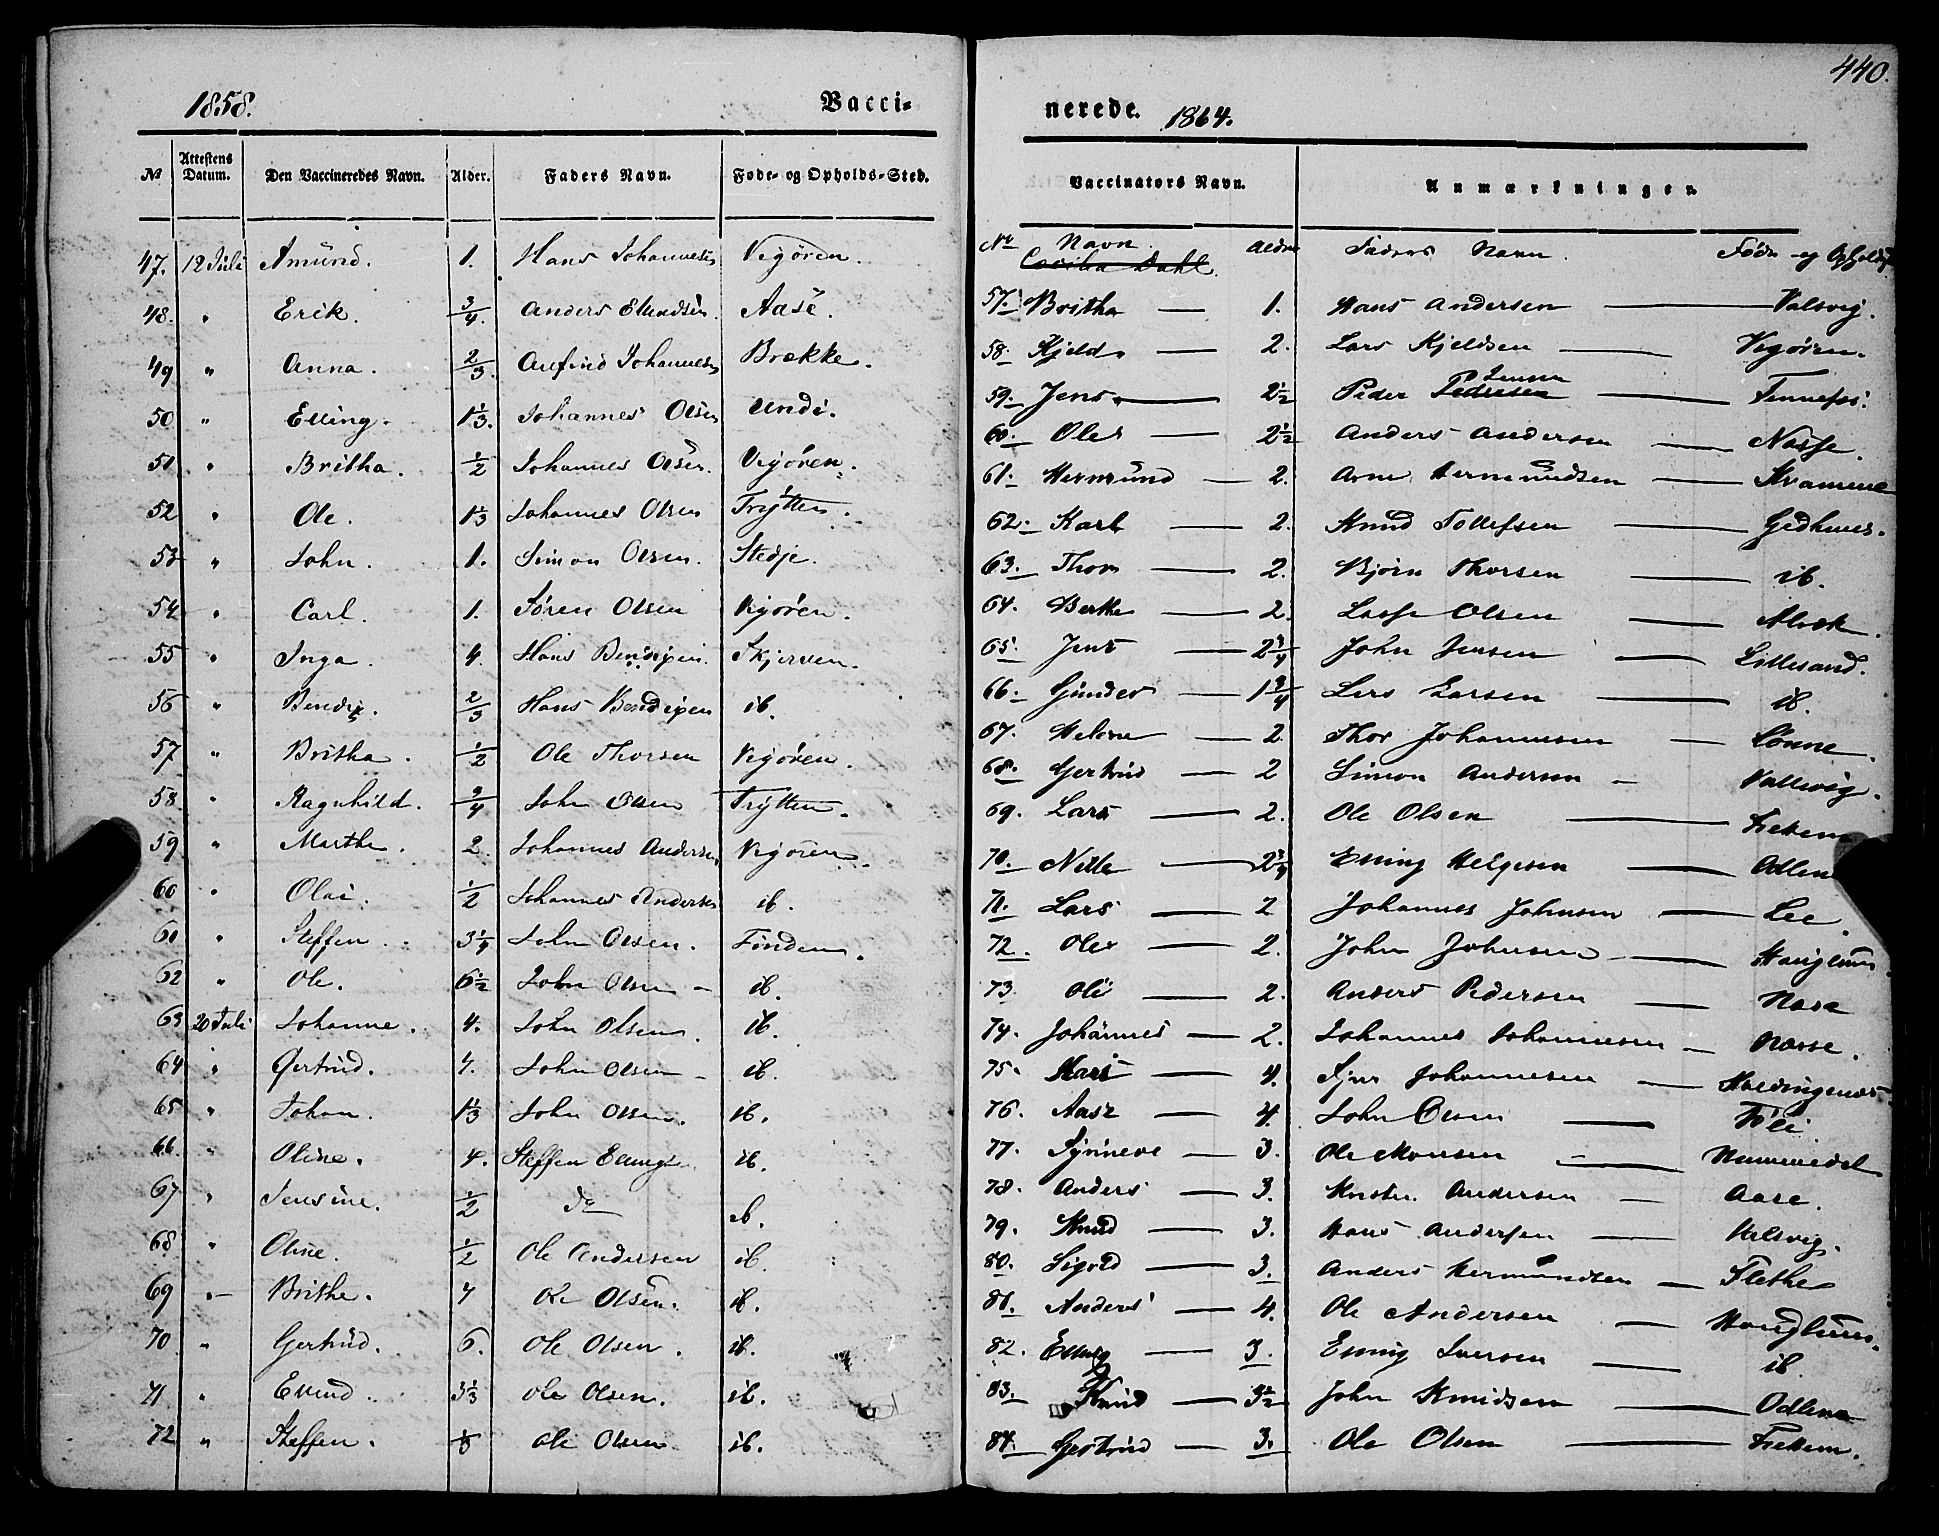 1858. Vacci-
№ Attestens Datum. Den Vaccineredes Navn. Alder. Faders Navn. Føde- og Opholds-Sted.
47. 12 Juli Amund. 1. Hans Johannesen Vigøren.
48. " Erik. 3/4. Anders Ellendsen. Aase.
49 " Anna. 2/3. Johannesen Brække.
50 " Elling. 1 1/3. Johannes Olsen Undi.
51 " Britha. 1/2 Johannes Olsen. Vigøren.
52 " Ole. 1 1/3 Johannes Olsen Frÿtten.
53 " John. 1. Simon Olsen. Stedje.
54 " Carl. 1. Søren Olsen Vigøren.
55 " Inga. 4. Hans Bendixen. Skjerven.
56 " Bendix. 2/3 Hans Bendixen ib.
57 " Britha. 1/2 Ole Thorsen Vigøren.
58 " Ragnhild. 3/4 John Olsen Frÿtten.
59 " Marthe. 2. Johannes Andersen Vigøren.
60 " Olai. 1/2 Johannes Andersen ib.
61 " Steffen. 3 1/4 John Olsen. Finden.
62 " Ole. 6 1/2 John Olsen - ib.
63 20 Juli Johanne. 4. John Olsen. ib.
64 " Gertrud. 7. John Olsen - ib.
65 " Johan. 1 1/3 John Olsen. ib.
66 " Oline. 4. Steffen Ellingsen ib.
67 " Jensine. 1/2 do ib.
68 " Oline. 1/2 Ole Andersen ib.
69 " Brithe. 7 Ole Olsen. ib.
70 " Gertrud. 6. Ole Olsen. ib.
71 " Evind. 3 1/3 Ole Olsen. ib.
72 " Steffen. Ole Olsen. ib.
440.
nerede. 1864.
Vaccinators Navn. Anmærkninger.
No Navn. Alder Faders Navn. Føde- og Opholds
Cecilia Dahl.
57. Britha — 1. Hans Andersen — Valsvig.
58. Kjeld — 2. Lars Kjeldsen — Vigøren.
59. Jens — 2 1/2 Peder Pedersen Jensen — Fennefos.
60. Ole — 2 1/2 Anders Andersen — Nasse.
61. Hermund — 2. Arne Hermundsen — Kvamme
62. Karl — 2. Knud Tollefsen —
63. Thor — 2. Bjørn Thorsen — ib.
64. Berthe — 2. Lasse Olsen —
65. Jens — 2 3/4 John Jensen — Lillesand.
66. Gunder — 1 3/4 Lars Larsen — ib.
67. Helene — 2 Thor Johannesen — Lønne.
68. Gertrud — 2 Simon Andersen — Vallevig.
69. Lars — 2. Ole Olsen — Frettem
70. Nille — 2 3/4 Elling Helgesen — Odlen
71. Lars — 2 Johannes Johnsen — Lee.
72. Ole — 2. John Johnsen —
73. Ole — 2. Anders Pedersen — Nase
74. Johannes — 2. Johannes Johannesen — Nasse.
75. Kari — 4. Sjur Johannesen —
76. Aase — 4. John Olsen — Føli
77. Synneve — 3. Ole Monsen — Nummedal
78. Anders — 3. Andersen — Aase.
79. Knud — 3. Hans Andersen — Valsvig.
80. Sigvld — 3. Anders Hermundsen — Flethe
81. Anders — 4. Ole Andersen —
82. Elling — 3. Elling Iversen — ib.
83. Knud — 3 1/2 John Knudsen — Odlena
84. Gertrud — 3. Ole Olsen — Frettem.